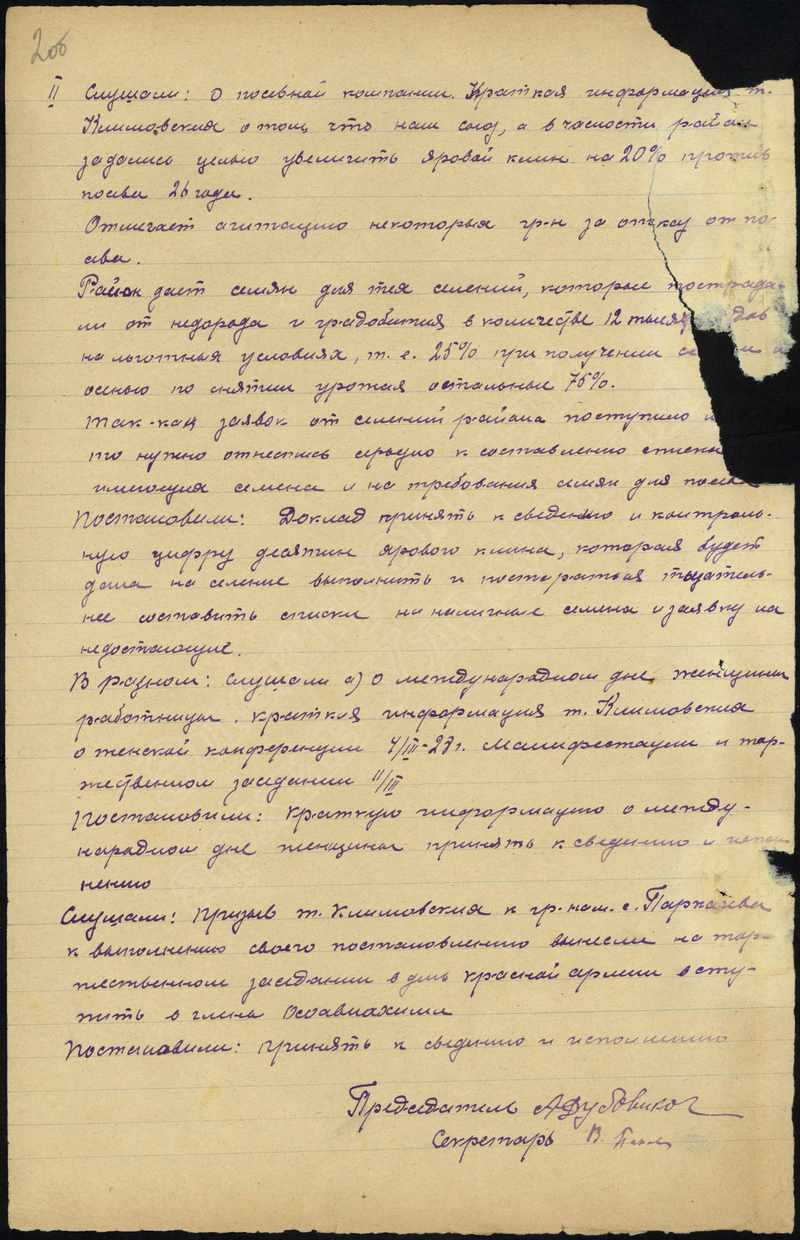 206
II Слушали: О посевной компании. Краткая информация т.
Климовския о том, что наш союз, а в часности район
задались целью увеличить яровой клин на 20% против
посева 26 года.
Отмечает агитацию некоторыя гр-н за отказ от по-
сева.
Район дает семян для тех селений, которые пострада-
ли от недорода и градобития в количестве 12 тысяч пудов
на льготныя условиях, т. е. 25% при получении и
осенью по снятии урожая остальные 75%.
Так-как заявок от селений района поступило
то нужно отнестись серьезно к составлению списка
имеющия семена и на требования семян для посева
Постановили: Доклад принять к сведению и контроль-
ную цифру десятин ярового клина, которая будет
дана на селение выполнить и постараться тщатель-
нее составить списки на наличные семена и заявку на
недостающие.
В разном: Слушали а) О международном дне женщины
работницы. Краткая информация т. Климовския
о женской конференции 4/III-27 г. Манифестации и тор-
жественном заседании 11/III
Постановили: Краткую информацию о между-
народном дне женщины принять к сведению и испол-
нению
Слушали: Призыв т. Климовския к гр. нам. с. Парканева
к выполнению своего постановлению вынесли на тор-
жественном заседании в день красной армии всту-
пить в члены Осоавиахима
Постановили: принять к сведению и исполнению
Председатель А Дубовиков
Секретарь В.